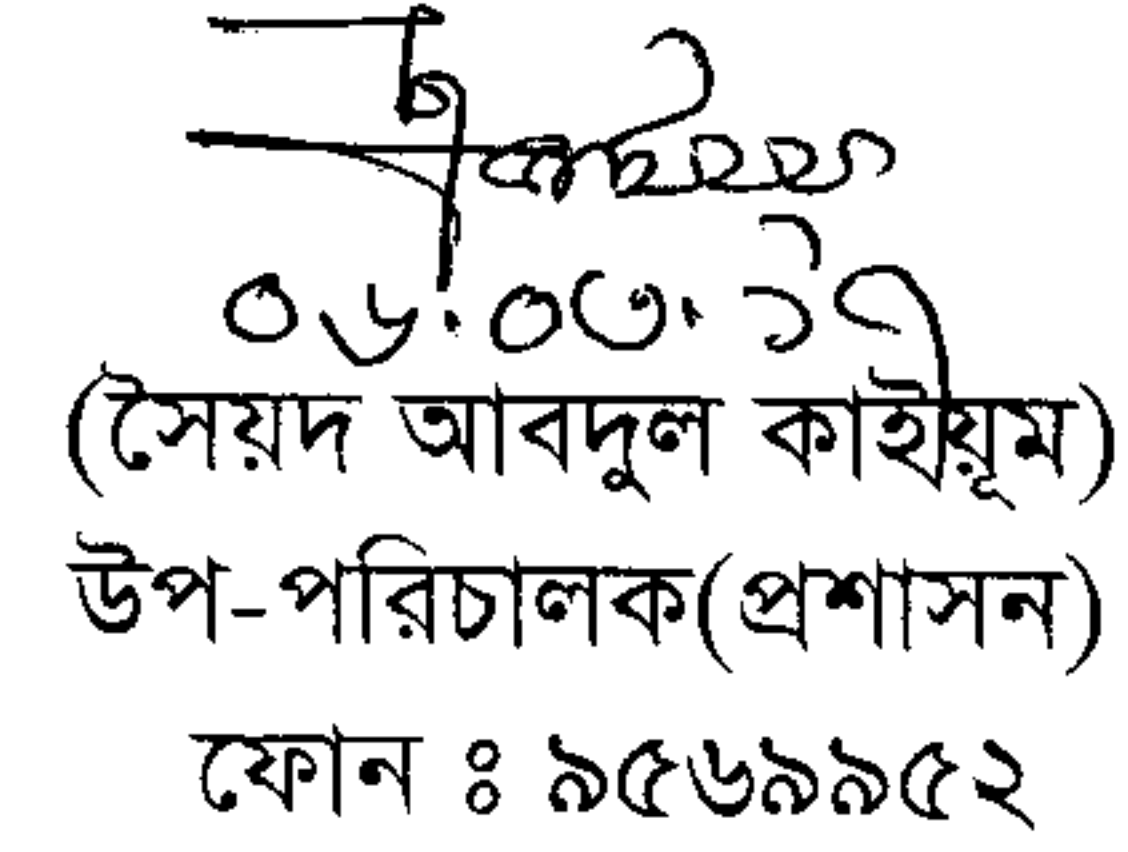 ০৬.০৩.১৭
(সৈয়দ আবদুল কাহীয়ূম)
উপ-পরিচালক(প্রশাসন)
ফোন : ৯৫৬৯৯৫২